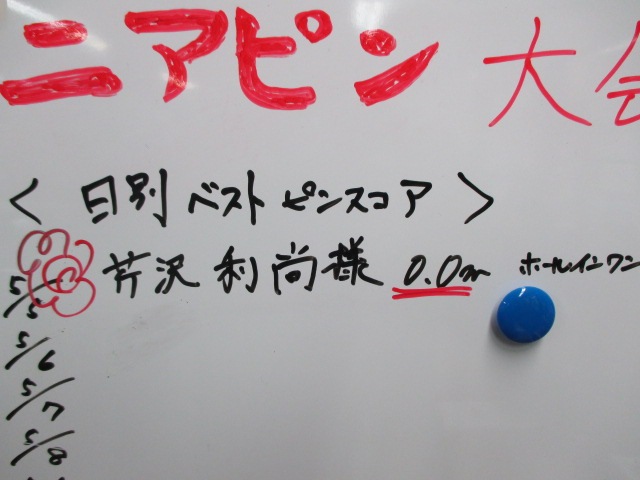 ニアピン 大会
< 日別 ベストピンスコア >
5/5 芹沢 利尚様 0.0m ホールインワン
5/6
5/7
5/8